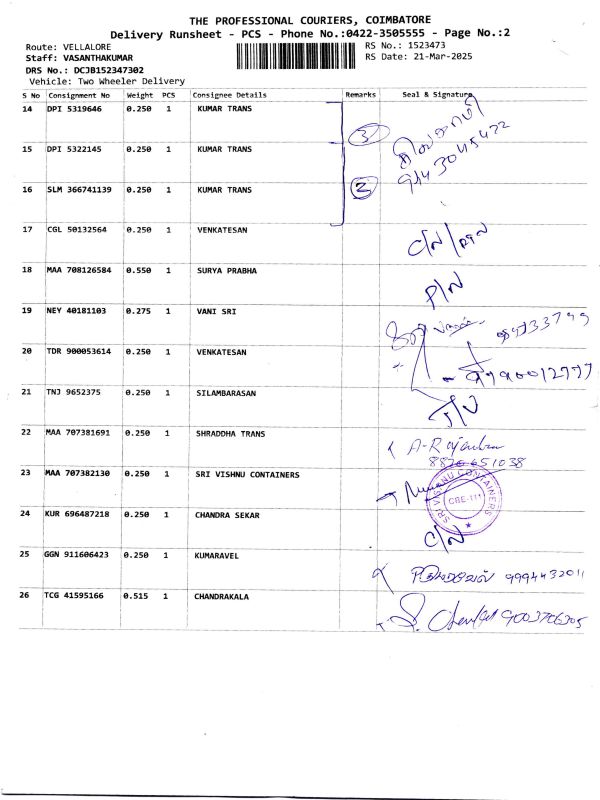 THE PROFESSIONAL COURIERS, COIMBATORE
Delivery Runsheet - PCS - Phone No.:0422-3505555 - Page No.:2
Route: VELLALORE
RS No.: 1523473
Staff: VASANTHAKUMAR
RS Date: 21-Mar-2025
DRS No.: DCJB152347302
Vehicle: Two Wheeler Delivery
S No Consignment No Weight PCS Consignee Details Remarks Seal & Signature
14 DPI 5319646 0.250 1 KUMAR TRANS
3
15 DPI 5322145 0.250 1 KUMAR TRANS
9443045422
16 SLM 366741139 0.250 1 KUMAR TRANS 2
17 CGL 50132564 0.250 1 VENKATESAN C/N
18 MAA 708126584 0.550 1 SURYA PRABHA P/N
19 NEY 40181103 0.275 1 VANI SRI
20 TDR 900053614 0.250 1 VENKATESAN
21 TNJ 9652375 0.250 1 SILAMBARASAN
22 MAA 707381691 0.250 1 SHRADDHA TRANS
8870651038
23 MAA 707382130 0.250 1 SRI VISHNU CONTAINERS
SRI VISHNU CONTAINERS
CBE-111
24 KUR 696487218 0.250 1 CHANDRA SEKAR C/N
25 GGN 911606423 0.250 1 KUMARAVEL 9994432011
26 TCG 41595166 0.515 1 CHANDRAKALA 9003706305